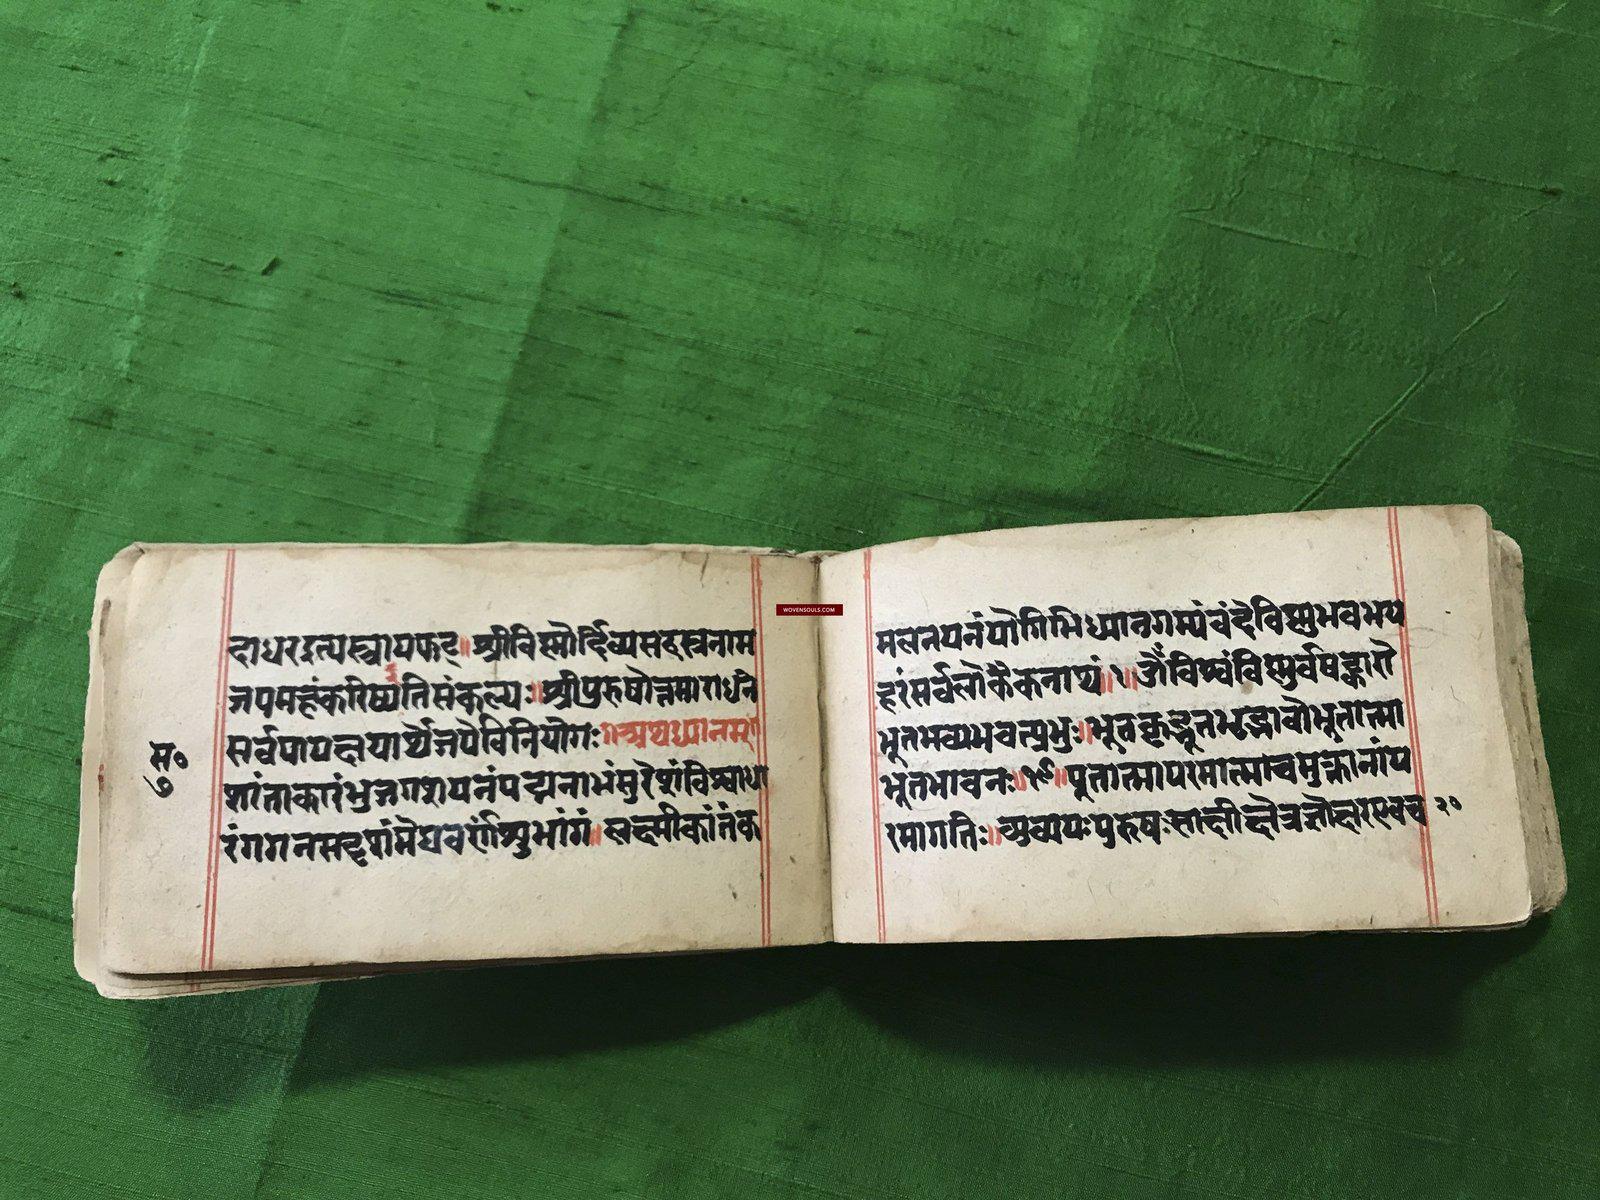 दाधरइत्यस्त्रायफट्॥श्रीविष्णोर्दिव्यसहस्त्रनाम
जपमहंकरिष्येतिसंकल्पः॥श्रीपुरुषोत्तमाराधनं
सर्वपापक्षयार्थेजपेविनियोगः॥अथध्यानम्॥
शांताकारंभुजगशयनंपद्मनाभंसुरेशंविश्वाधा
रंगगनसदृशंमेघवर्णंशुभांगं॥लक्ष्मीकांतंक
स॰
७
WOVENSOULS.COM
मलनयनंयोगिभिध्यानगम्यंवंदेविष्णुंभवभय
हरंसर्वलोकैकनाथं॥१॥ॐविश्वंविष्णुर्वषट्कारो
भूतभव्यभवत्प्रभुः॥भूतकृद्भूतभृद्भावोभूतात्मा
भूतभावनः॥१९॥पूतात्मापरमात्माचमुक्तानांप
रमागतिः॥अव्ययःपुरुषःसाक्षीक्षेत्रज्ञोक्षरएवच २०